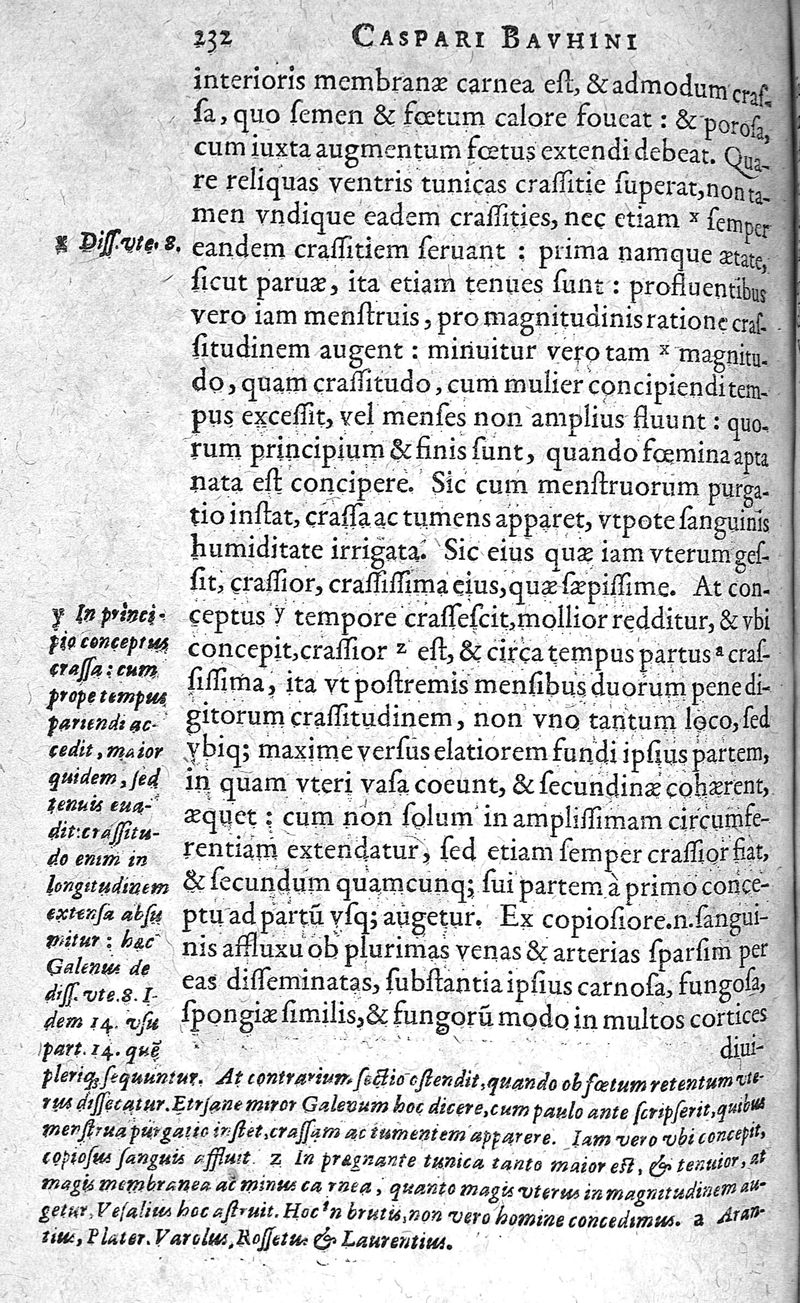 232 CASPARI BAVHINI
interioris membranæ carnea eſt, & admodum craſ-
ſa, quo ſemen & fœtum calore foueat : & poroſa,
cum iuxta augmentum fœtus extendi debeat. Qua-
re reliquas ventris tunicas craſſitie ſuperat, non ta-
men vndique eadem craſſities, nec etiam x ſemper
eandem craſſitiem ſeruant : prima namque ætate,
ſicut paruæ, ita etiam tenues ſunt : profluentibus
vero iam menſtruis, pro magnitudinis ratione craſ-
ſitudinem augent : minuitur vero tam x magnitu-
do, quam craſſitudo, cum mulier concipiendi tem-
pus exceſſit, vel menſes non amplius fluunt : quo-
rum principium & finis ſunt, quando fœmina apta
nata eſt concipere. Sic cum menſtruorum purga-
tio inſtat, craſſa ac tumens apparet, vtpote ſanguinis
humiditate irrigata. Sic eius quæ iam vterum geſ-
ſit, craſſior, craſſiſſima eius, quæ ſæpiſſime. At con-
ceptus y tempore craſſeſcit, mollior redditur, & vbi
concepit, craſſior z eſt, & circa tempus partus a craſ-
ſiſſima, ita vt poſtremis menſibus duorum pene di-
gitorum craſſitudinem, non vno tantum loco, ſed
vbiq; maxime verſus elatiorem fundi ipſius partem,
in quam vteri vaſa coeunt, & ſecundinæ cohærent,
æquet : cum non ſolum in ampliſſimam circumfe-
rentiam extendatur, ſed etiam ſemper craſſior fiat,
& ſecundum quamcunq; ſui partem à primo conce-
ptu ad partũ vſq; augetur. Ex copioſiore.n.ſangui-
nis affluxu ob plurimas venas & arterias ſparſim per
eas diſſeminatas, ſubſtantia ipſius carnoſa, fungoſa,
ſpongiæ ſimilis, & fungorũ modo in multos cortices
diui-
x Diſſ. vte. 8.
y In princi-
pio conceptus
craſſa : cum
prope tempus
pariendi ac-
cedit, maior
quidem, ſed
tenuis eua-
dit: craſſitu-
do enim in
longitudinem
extenſa abſu
mitur : hæc
Galenus de
diſſ. vte. 8. I-
dem 14. vſu
part. 14. quẽ
pleriq; ſequuntur. At contrarium ſectio oſtendit, quando ob fœtum retentum vte-
rus diſſecatur. Et ſane miror Galenum hoc dicere, cum paulo ante ſcripſerit, quibus
menſtrua purgatio inſtet, craſſam ac tumentem apparere. Iam vero vbi concepit,
copioſus ſanguis affluit. z In prægnante tunica tanto maior eſt, & tenuior, at
magis membranea ac minus carnea, quanto magis vterus in magnitudinem au-
getur, Veſalius hoc aſtruit. Hoc in brutis, non vero homine concedimus. a Aran-
tius, Plater. Varolus, Roſſetus & Laurentius.